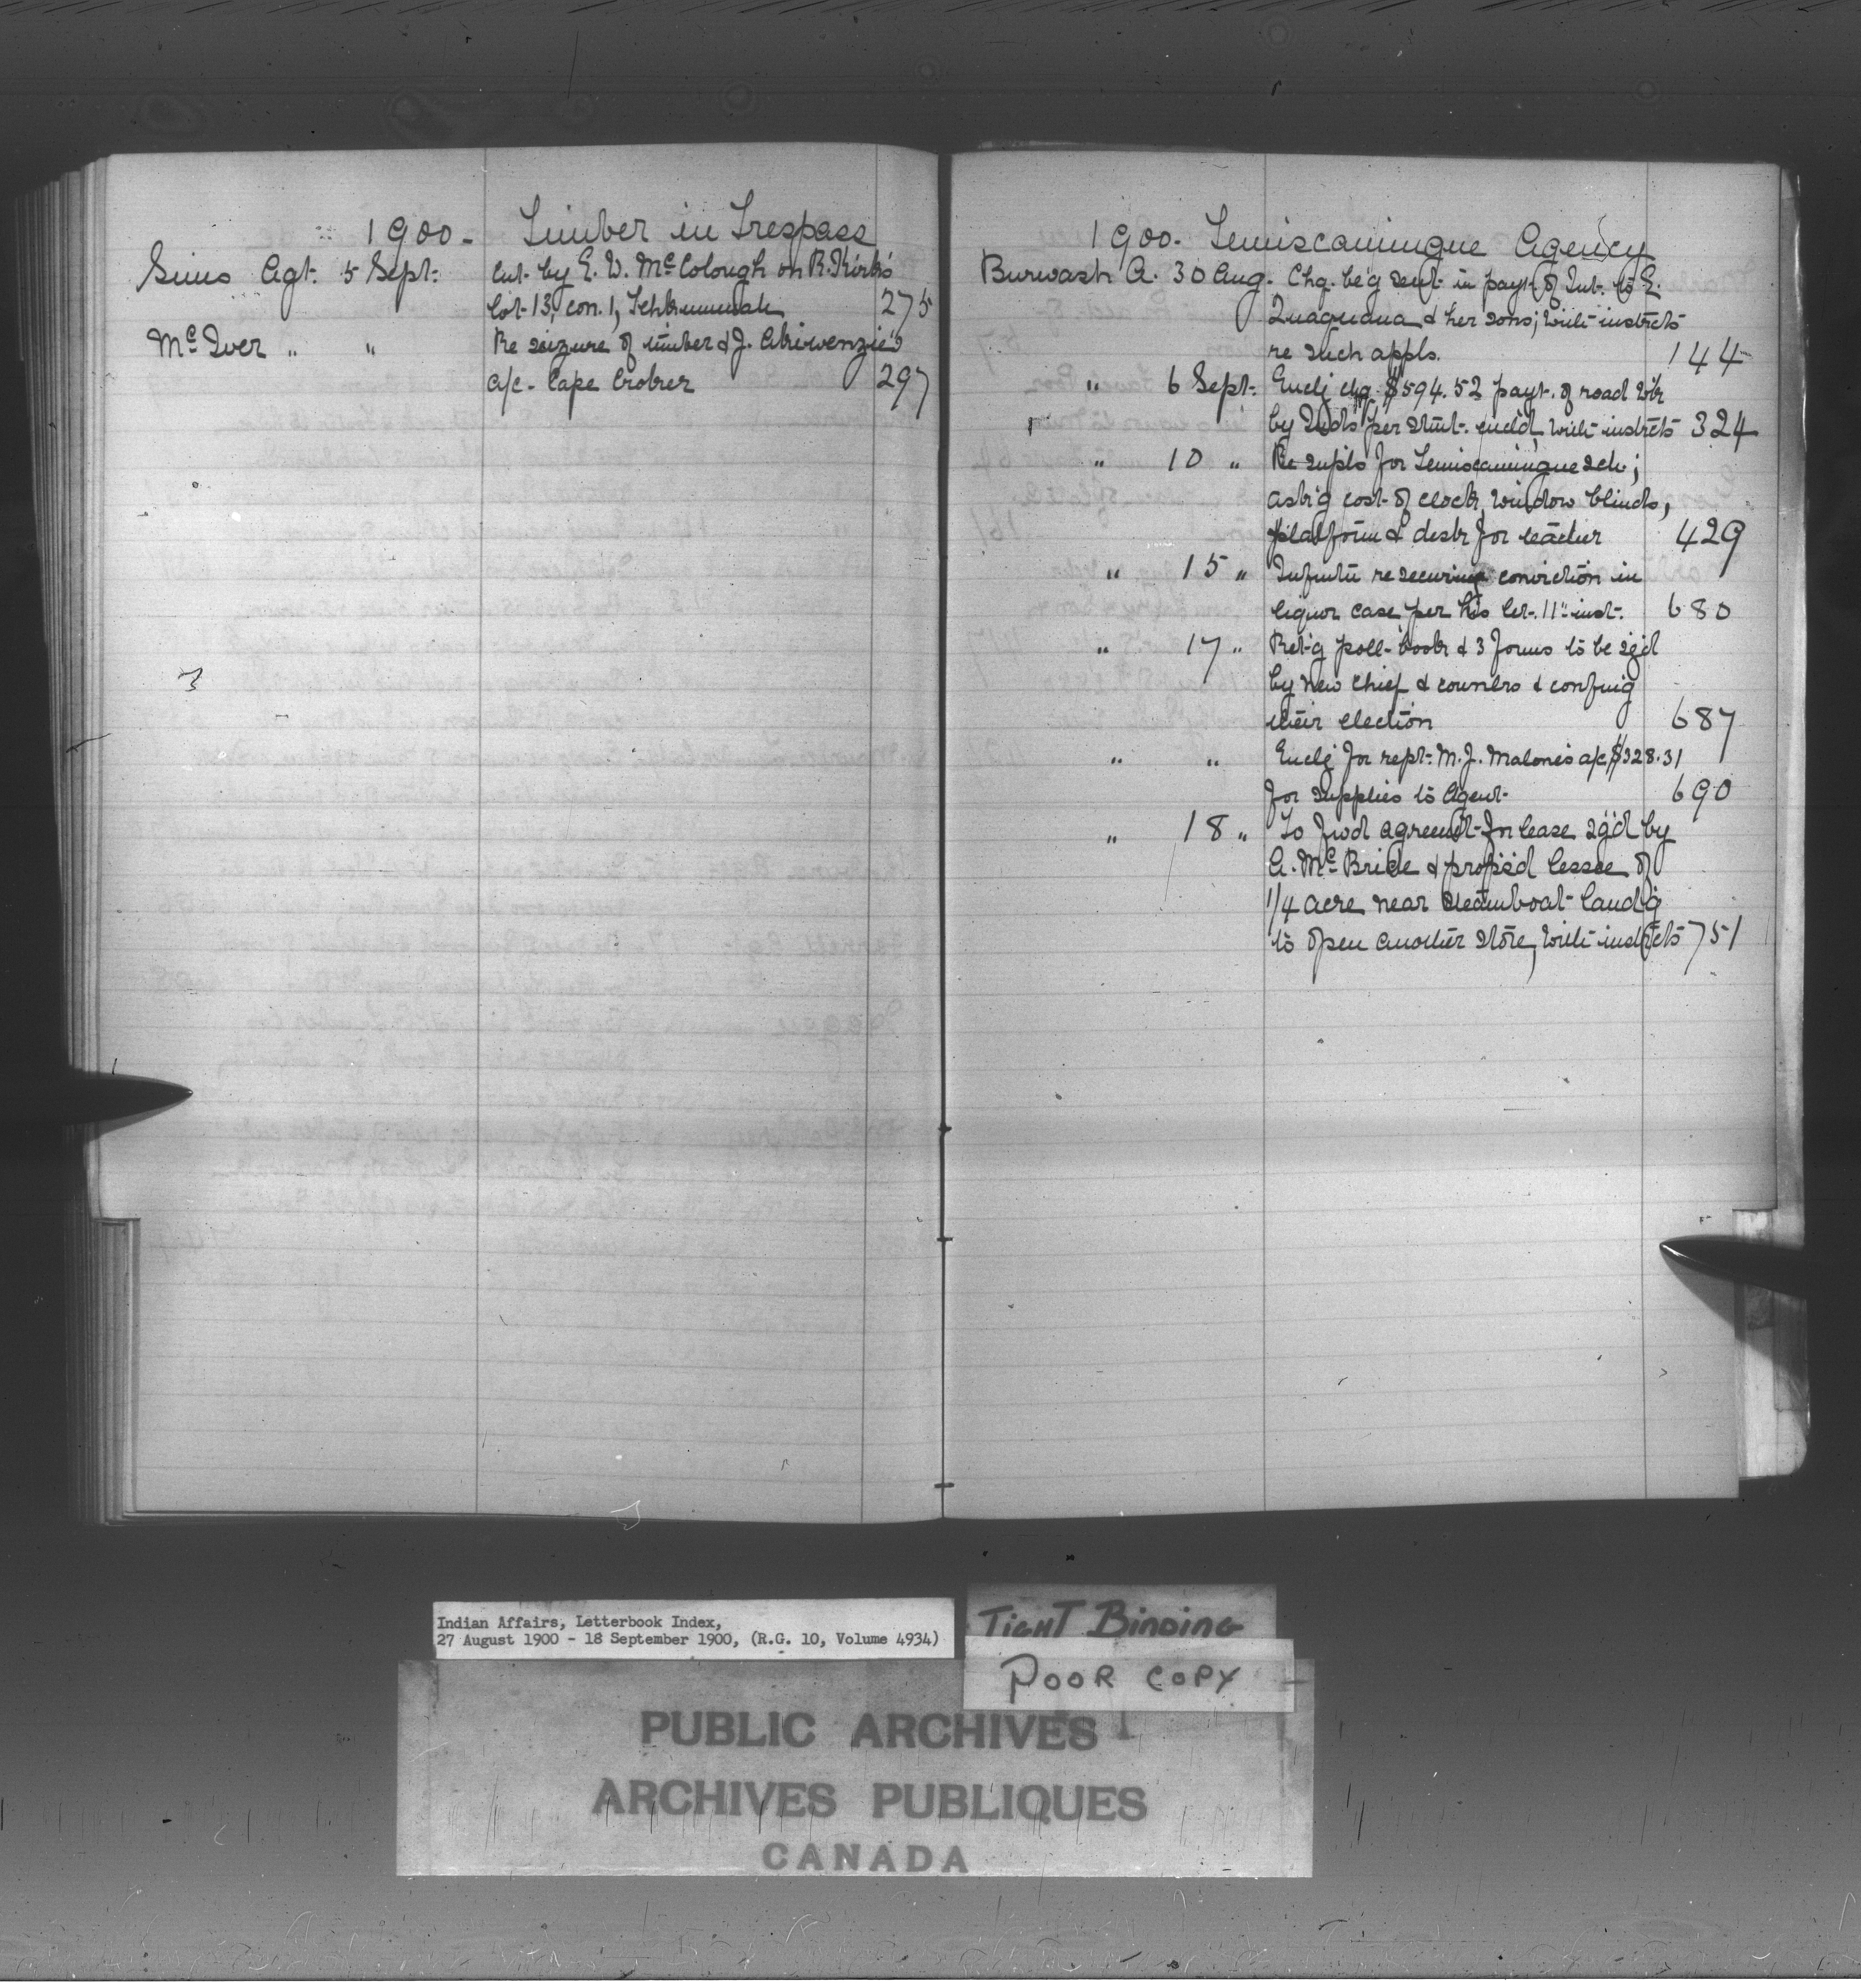 1900 - Timber in Trespass
Sims Agt. 5 Sept. Cut by E. W. McColough on R. Kirk's
Lot 13, con. 1, 275
McIver " " Re seizure of timber & J. Akiwenzie's
a/c - Cape Croker 297
1900. Temiscamingue Agency
Burwash A. 30 Aug. Chq. be'g sent in payt. of Int. to E.
& her sons; with instrcts
re such appls. 144
" 6 Sept. Enclg chq. $594.52 payt. of road wk
by Inds per stmt. encld, with instrcts 324
" 10 " Re supls for Temiscamingue sch;
ask'g cost of clock, window blinds,
platform & desk for teacher 429
" 15 " re securing conviction in
liquor case per his let. 11" inst. 680
" 17 " Ret'g poll-book & 3 forms to be sg'd
by new chief & counclrs & confmg
their election 687
" " Enclg for rept. M. J. Malone's a/c $328.31
for supplies to Agent 690
" 18 " To fwd agreemt for lease sg'd by
A. McBride & propos'd lessee of
1/4 acre near steamboat land'g
to open another store, with instrcts 751
Indian Affairs, Letterbook Index,
27 August 1900 - 18 September 1900, (R.G. 10, Volume 4934)
TIGHT BINDING
POOR COPY
PUBLIC ARCHIVES
ARCHIVES PUBLIQUES
CANADA